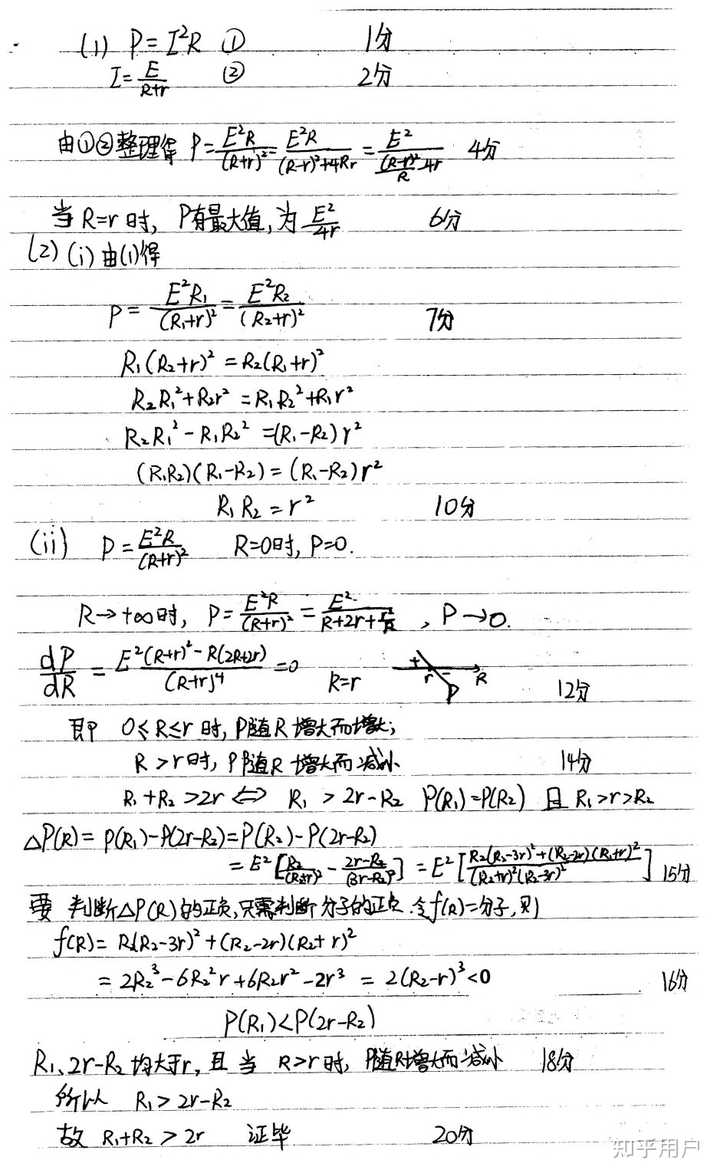 (1) P=I²R ① 1分
I=E/(R+r) ② 2分
由①②整理得 P=E²R/(R+r)²=E²R/((R-r)²+4Rr)=E²/((R-r)²/R+4r) 4分
当R=r时, P有最大值,为E²/4r 6分
(2)(i)由(1)得
P=E²R₁/(R₁+r)²=E²R₂/(R₂+r)² 7分
R₁(R₂+r)²=R₂(R₁+r)²
R₂R₁²+R₂r²=R₁R₂²+R₁r²
R₂R₁²-R₁R₂²=(R₁-R₂)r²
(R₁R₂)(R₁-R₂)=(R₁-R₂)r²
R₁R₂=r² 10分
(ii) P=E²R/(R+r)² R=0时, P=0.
R→+∞时, P=E²R/(R+r)²=E²/(R+2r+r²/R), P→0.
dP/dR=E²(R+r)²-R(2R+2r)/(R+r)⁴=0 R=r + r - R P 12分
即 0≤R≤r时,P随R增大而增大;
R>r时,P随R增大而减小 14分
R₁+R₂>2r⇔R₁>2r-R₂ P(R₁)=P(R₂) 且R₁>r>R₂
△P(R)=P(R₁)-P(2r-R₂)=P(R₂)-P(2r-R₂)
=E²[R₂/(R₂+r)²-(2r-R₂)/(3r-R₂)²]=E²[(R₂(R₂-3r)²+(R₂-2r)(R₂+r)²)/((R₂+r)²(R₂-3r)²)] 15分
要判断△P(R)的正负,只需判断分子的正负.令f(R)=分子,则
f(R)=R₂(R₂-3r)²+(R₂-2r)(R₂+r)²
=2R₂³-6R₂²r+6R₂r²-2r³=2(R₂-r)³<0 16分
P(R₁)<P(2r-R₂)
R₁、2r-R₂均大于r,且当R>r时,P随R增大而减小 18分
所以 R₁>2r-R₂
故 R₁+R₂>2r 证毕 20分
知乎用户